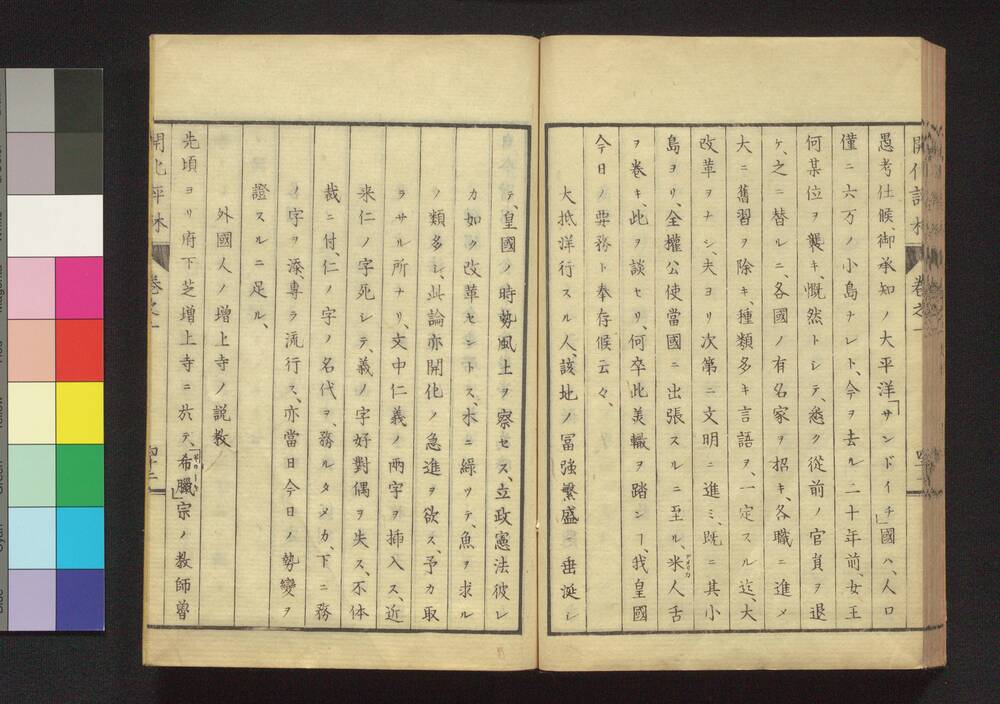 開化評林 卷之一
愚考仕候、御承知ノ大平洋「サンドイチ」國ハ、人口
僅ニ六万ノ小島ナレト、今ヲ去ル二十年前、女王
何某位ヲ襲キ、慨然トシテ、悉ク從前ノ官員ヲ退
ケ、之ニ替ルニ、各國ノ有名家ヲ招キ、各職ニ進メ
大ニ舊習ヲ除キ、種類多キ言語ヲ、一定スル迄、大
改革ヲナシ、夫ヨリ次第ニ文明ニ進ミ、既ニ其小
島ヨリ、全權公使當國ニ出張スルニ至ル、米人舌
ヲ卷キ、此ヲ談セリ、何卒此美轍ヲ踏ンヿ、我皇國
今日ノ要務ト奉存候云々、
大抵洋行スル人、該地ノ冨強繁盛ニ垂涎シ
テ、皇國ノ時勢風土ヲ察セス、立政憲法彼レ
カ如ク改革セントス、木ニ緣ツテ、魚ヲ求ル
ノ類多シ、此論亦開化ノ急進ヲ欲ス、予カ取
ラサル所ナリ、文中仁義ノ兩字ヲ挿入ス、近
来仁ノ字死シテ、義ノ字好對偶ヲ失ス、不体
裁ニ付、仁ノ字ノ名代ヲ、務ルタメカ、下ニ務
ノ字ヲ添、專ラ流行ス、亦當日今日ノ勢變ヲ
證スルニ足ル、
外國人ノ增上寺ノ説教
先頃ヨリ府下芝增上寺ニ於テ、「希臘」宗ノ教師曽
開化評林 卷之一 四十二